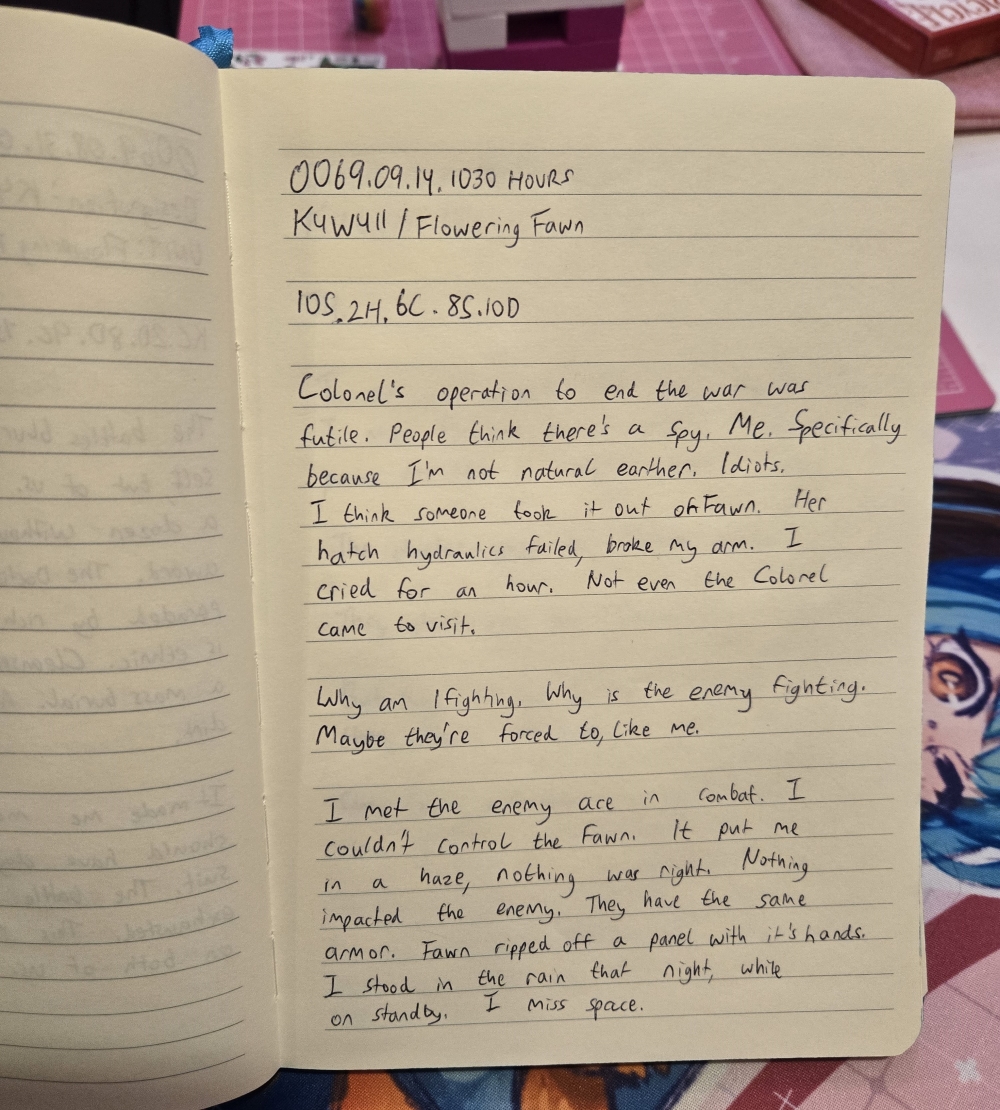 0069.09.14. 1030 HOURS
K4W411 / Flowering Fawn
10S.2H.6C.8S.10D
Colonel's operation to end the war was
futile. People think there's a spy. Me. Specifically
because I'm not natural earther. Idiots.
I think someone took it out on Fawn. Her
hatch hydraulics failed, broke my arm. I
cried for an hour. Not even the Colonel
came to visit.
Why am I fighting. Why is the enemy fighting.
Maybe they're forced to, like me.
I met the enemy ace in combat. I
couldn't control the Fawn. It put me
in a haze, nothing was right. Nothing
impacted the enemy. They have the same
armor. Fawn ripped off a panel with it's hands.
I stood in the rain that night, while
on standby. I miss space.